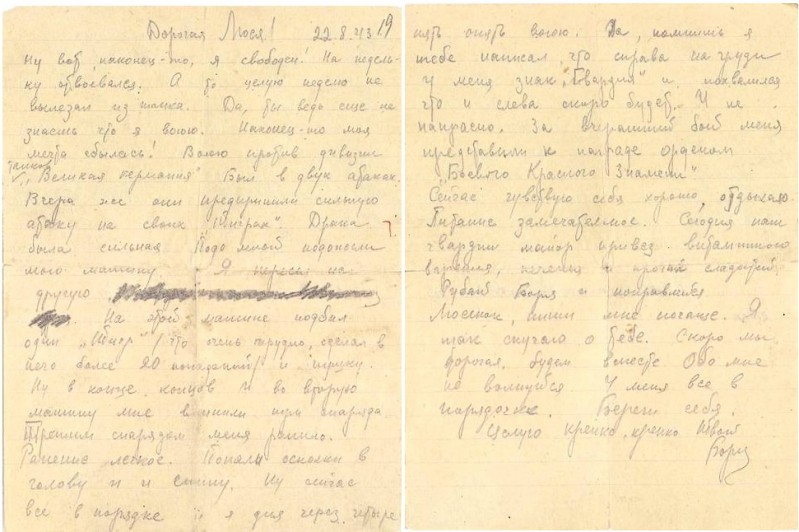 Дорогая Люся! 22.8.43 19
Ну вот, наконец-то, я свободен! На недель-
ку отвоевался. А то целую неделю не
вылезал из танка. Да, ты ведь еще не
знаешь что я воюю. Наконец-то моя
мечта сбылась! Воюю против дивизии
танков
"Великая германия". Был в двух атаках.
Вчера же они предприняли сильную
атаку на своих "Тиграх". Драка
была сильная. Подо мной подожгли
мою машину. Я пересел на
другую
На этой машине подбил
один "Тигр" (что очень трудно, сделал в
него более 20 попаданий) и пушку.
Ну в конце концов и во вторую
машину мне влепили три снаряда
Третьим снарядом меня ранило.
Ранение легкое. Попали осколки в
голову и в спину. Ну сейчас
все в порядке и я дня через четыре
опять воюю. Да, помнишь я
тебе написал, что справа на груди
у меня знак "Гвардия" и похвалился
что и слева скоро будет. И не
напрасно. За вчерашний бой меня
представили к награде орденом
"Боевого Красного Знамени"
Сейчас чувствую себя хорошо, отдыхаю.
Питание замечательное. Сегодня наш
гвардии майор привез витаминного
варения, печения и прочих сладостей.
Рубай Боря и поправляйся
Люсенок, пиши мне почаще. Я
так скучаю о тебе. Скоро мы
дорогая, будем вместе. Обо мне
не волнуйся У меня все в
порядочке. Береги себя.
Целую крепко, крепко Твой
Боря